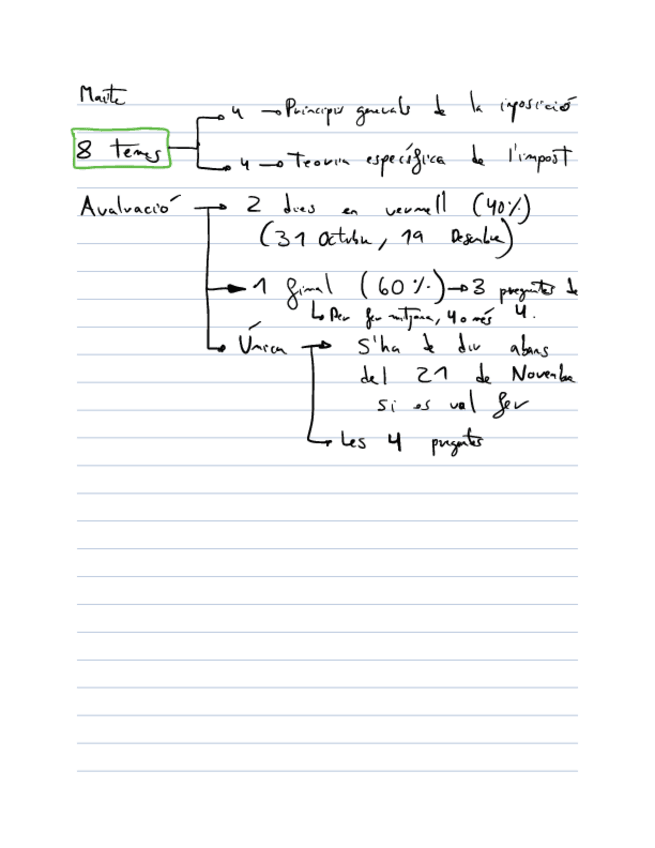 Maite
4 → Principis generals de la imposició
8 temes
4 → Teoria específica de l'impost
Avaluació → 2 dies en vermell (40%)
(31 Octubre, 19 Desembre)
→ 1 final (60%) → 3 preguntes de
↳ Per fer mitjana, 4 o més 4.
Única → S'ha de dir abans
del 21 de Novembre
si es vol fer
Les 4 preguntes